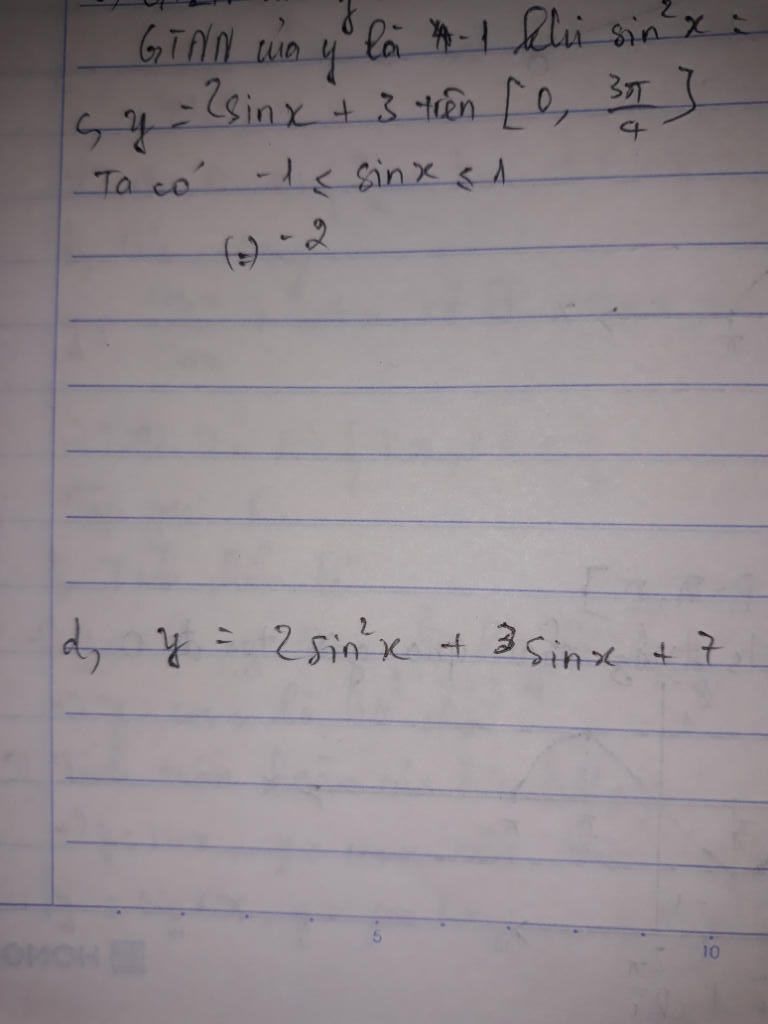 GTNN của y là -1 khi sin²x =
c, y = 2sinx + 3 trên [0, 3π/4]
Ta có -1 ≤ sinx ≤ 1
(=) -2
d, y = 2sin²x + 3sinx + 7
5 10